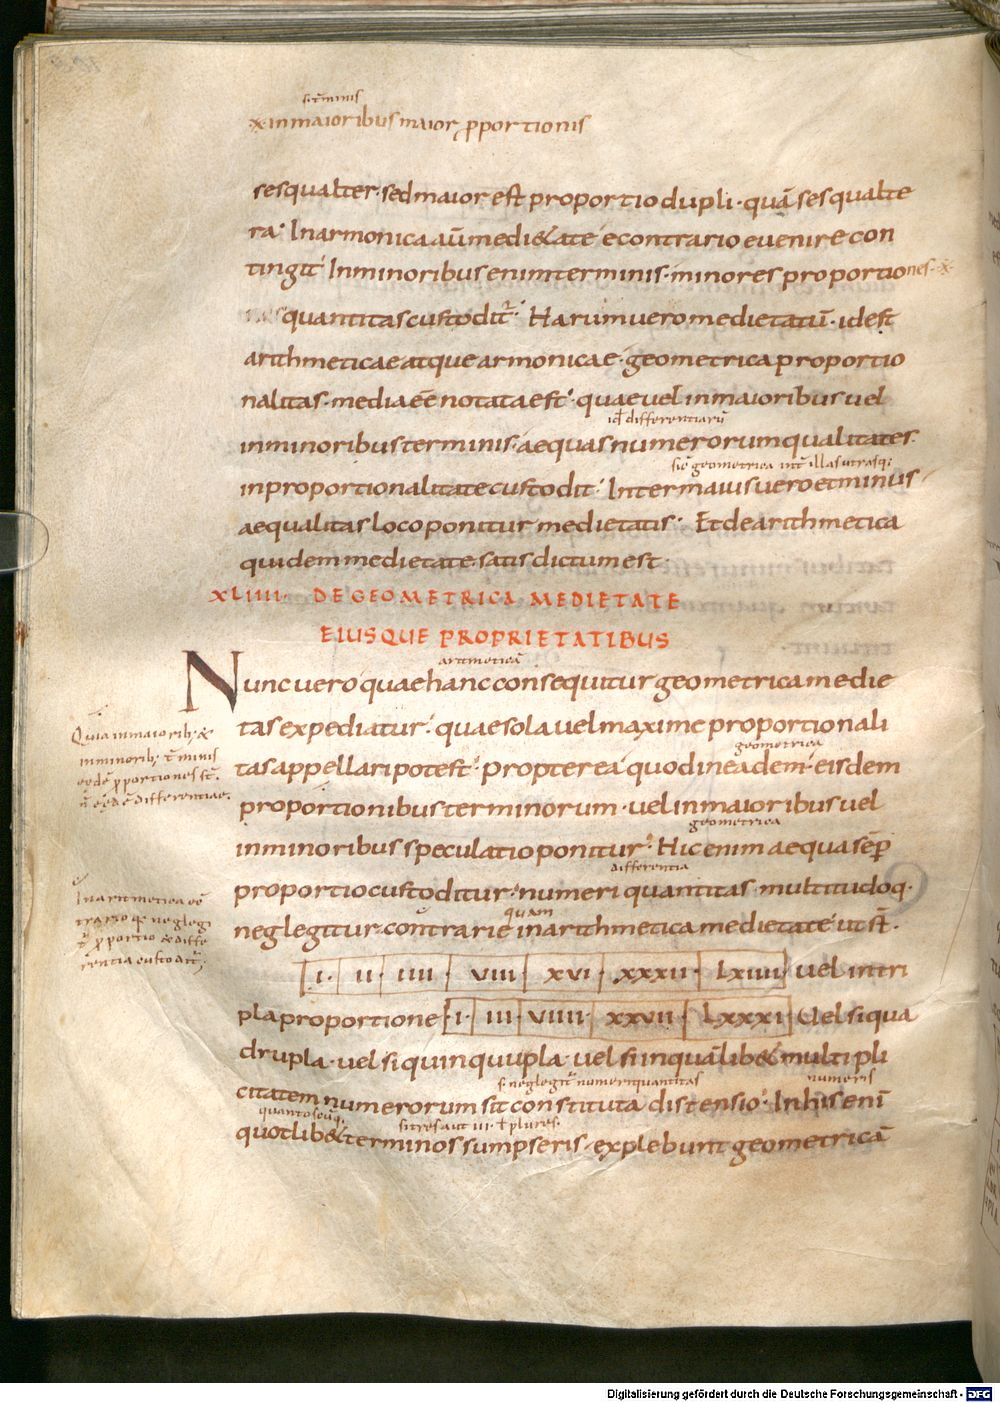 s. t̄minis
x inmaioribus maior ꝓportionis
sesqualter· sed maior est proportio dupli· quā sesqualte
ra· In armonica aū medi&ate e contrario euenire con
tingit· In minoribus enim terminis· minores proportiones·
quantitas custoditr̄· Harum uero medietatū· idest
arithmeticae atque armonicae· geometrica proportio
nalitas· media eē notata est· quae uel in maioribus uel
id differentiarū
in minoribus terminis· aequas numerorum qualitates·
sic̄ geometrica int̄ illas utrasq;
in proportionalitate custodit· Inter maius uero et minus
aequalitas loco ponitur medietatis· Et de arithmetica
quidem medietate satis dictum est·
XLIIII· DE GEOMETRICA MEDIETATE
EIUSQUE PROPRIETATIBUS
aritmeticā
Nunc uero quae hanc consequitur geometrica medie
tas expediatur· quae sola uel maxime proportionali
geometrica
tas appellari potest· propterea quod in eadem· eisdem
proportionibus terminorum· uel in maioribus uel
geometrica
in minoribus speculatio ponitur· Hic enim aequa sēp
differentia
proportio custoditur· numeri quantitas· multitudoq·
quam
neglegitur· contrarie in arithmetica medietate ut st̄·
I· II· IIII· VIII· XVI· XXXII· LXIIII uel in tri
pla proportione I· III· VIIII· XXVII· LXXXI Uel si qua
drupla· uel si quincuupla· uel si in quālib& multipli
s· neglegit̄ numeri quantitas numeris
citatem numerorum sit constituta distensio· In his enī
quantoscūq, si tres aut IIII· ł plures·
quotlib& terminos sumpseris· explebunt geometricā
Quia inmaiorib; &
inminorib; t̄minis
eedē ꝓportiones st̄·
n̄ eędē differentiae·
In aritmetica cō
trario q; neglegi
t̄ ꝓportio & diffe
rentia custodit̄;
Digitalisierung gefördert durch die Deutsche Forschungsgemeinschaft - DFG